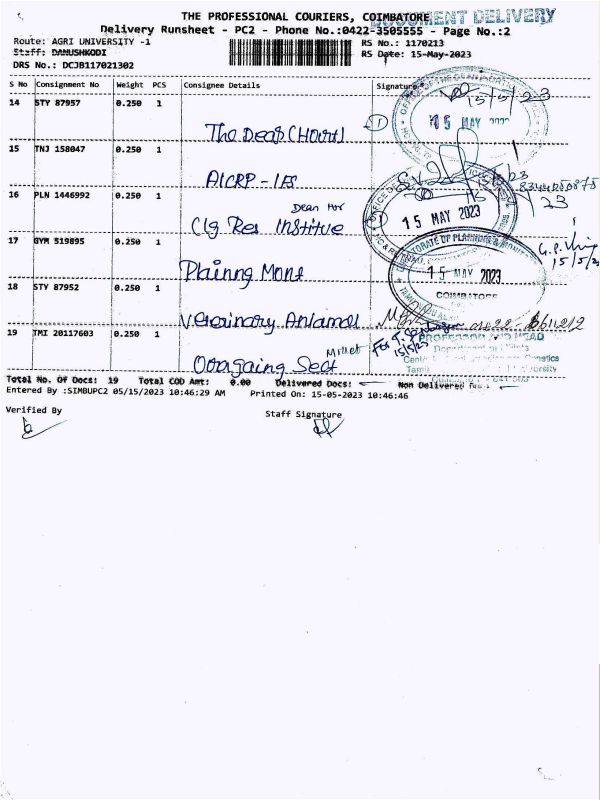 THE PROFESSIONAL COURIERS, COIMBATORE
DOCUMENT DELIVERY
Delivery Runsheet - PC2 - Phone No.:0422-3505555 - Page No.:2
Route: AGRI UNIVERSITY -1 RS No.: 1170213
Staff: DANUSHKODI RS Date: 15-May-2023
DRS No.: DCJB117021302
S No Consignment No Weight PCS Consignee Details Signature
14 STY 87957 0.250 1
15/5/23
15 MAY 2023
The Dean (Horti)
15 TNJ 158047 0.250 1
AICRP - IFS
8344050875
16 PLN 1446992 0.250 1
Dean Hor
Clg. Res Institue
15 MAY 2023
17 GYM 519895 0.250 1
DIRECTORATE OF PLANNING & MONITORING
15 MAY 2023
COIMBATORE
15/5/23
Plainng Mont
18 STY 87952 0.250 1
Veterinary Animal
19 TMI 20117603 0.250 1
15/5/23
PROFESSOR AND HEAD
Department of Millets
Millet
Total No. Of Docs: 19 Total COD Amt: 0.00 Delivered Docs: Non Delivered
Entered By :SIMBUPC2 05/15/2023 10:46:29 AM Printed On: 15-05-2023 10:46:46
Verified By Staff Signature